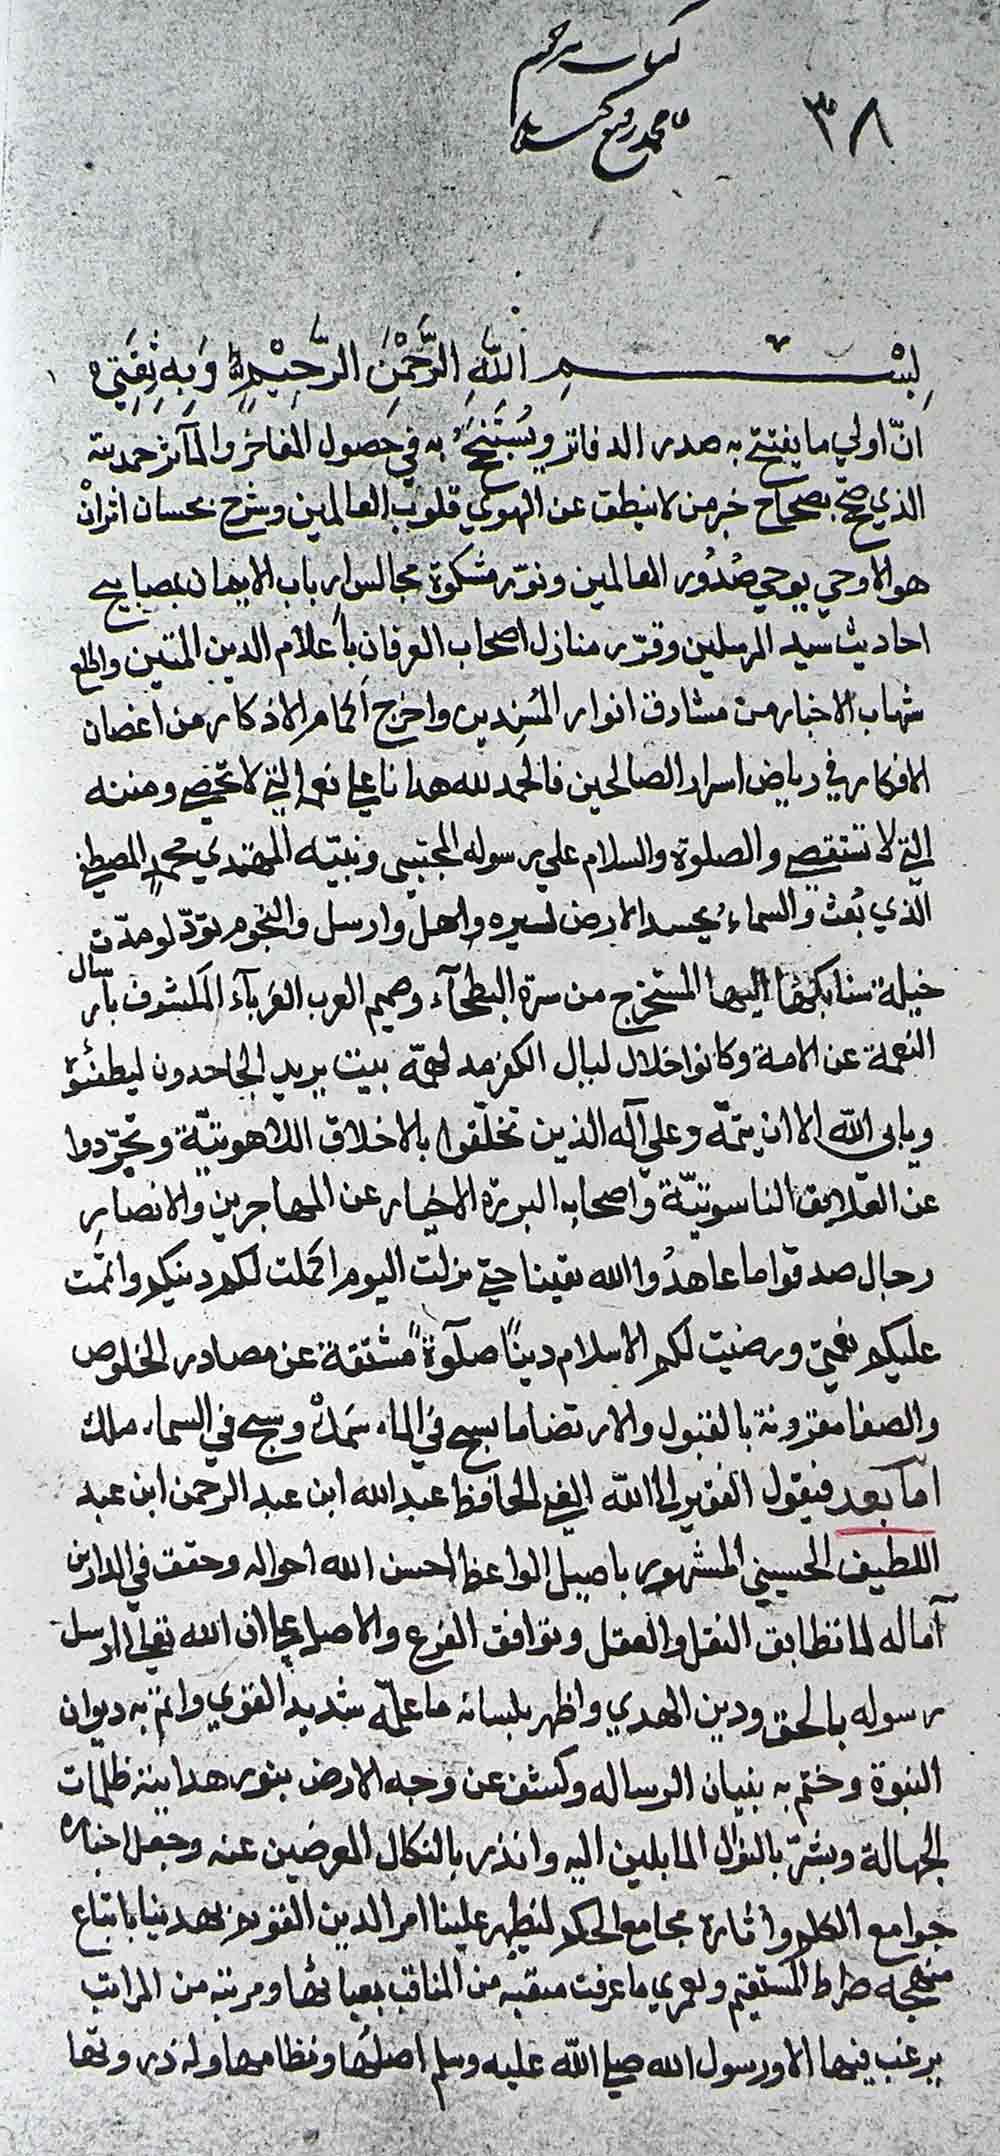 ٣٨
محمد رفيع
بسم الله الرحمن الرحيم وبه ثقتي
انّ اولي ما يفتتح به صدر الدفاتر ويستنجح به في حصول المفاخر والمآثر حمد لله
الذي صحّح بصحاح خبر من لا ينطق عن الهوي قلوب العالمين وشرح بحسان اثر ان
هو الا وحي يوحي صُدُور العالمين ونوّر مشكوة مجالس ارباب الايمان بمصابيح
احاديث سيد المرسلين وقرّر منازل اصحاب العرفان باعلام الدين المتين واطلع
شهاب الاخبار من مشارق انوار المُسندين واخرج اكمام الاذكار من اغصان
الافكار في رياض اسرار الصالحين فالحمد لله هدانا علي نعمه التي لا تحصي ومننه
التي لا تستقصي والصلوة والسلام علي رسوله المجتبي ونبيّه المهتدي محمد المصطفي
الّذي بُعث والسماء يحسد الارض لسيره وارسل والنجوم تودّ لو مدّت
خيله سنابكها اليها المستخرج من سرة البطحآء وصميم العرب العَربآء المكشوف بارسال
النعمة عن الامة وكانوا خلال ليال الكفر مدلهمّة يريد الجاحدون ليطفئوه
ويابي الله الا ان يتمّه وعلي آله الذين تخلّقوا بالاخلاق اللاهوتيّة وتجرّدوا
عن العلايق الناسوتيّة واصحابه البررة الاخيار عن المهاجرين والانصار
رجال صدقوا ما عاهدُوا الله يقينا حتي نزلت اليوم اكملت لكم دينكم واتممت
عليكم نعمتي ورضيت لكم الاسلام دينًا صلوةً مشتقة عن مصادر الخلوص
والصفا مقرونة بالقبول والارتضا ما يسبح في الماء سَمَكْ وسبح في السماء ملك
اما بعد فيقول الفقير الي الله الغني الحافظ عبد الله ابن عبد الرحمن ابن عبد
اللطيف الحسيني المشهور باصيل الواعظ احسن الله احواله وحقق في الدارين
آماله لما تطابق النقل والعقل وتوافق الفرع والاصل علي ان الله تعالي ارسل
رسوله بالحق ودين الهدي واظهر بلسانه ما علّمه شديد القوي واتم به ديوان
النبوة وختم به بنيان الرساله وكشف عن وجه الارض بنور هدايته ظلمات
الجهالة وبشّر بالنوال المايلين اليه وانذر بالنكال المعرضين عنه وجعل اخباره
جوامع الكلم وآثاره مجامع الحكم ليظهر علينا امر الدين القويم يهدينا باتباع
منهجه صراط المستقيم ولعمري ما عرفت منقبه من المناقب ومرتبه من المراتب
يرغب فيها الا ورسول الله صلي الله عليه وسلم اصلها ونظامها وله ذروتها